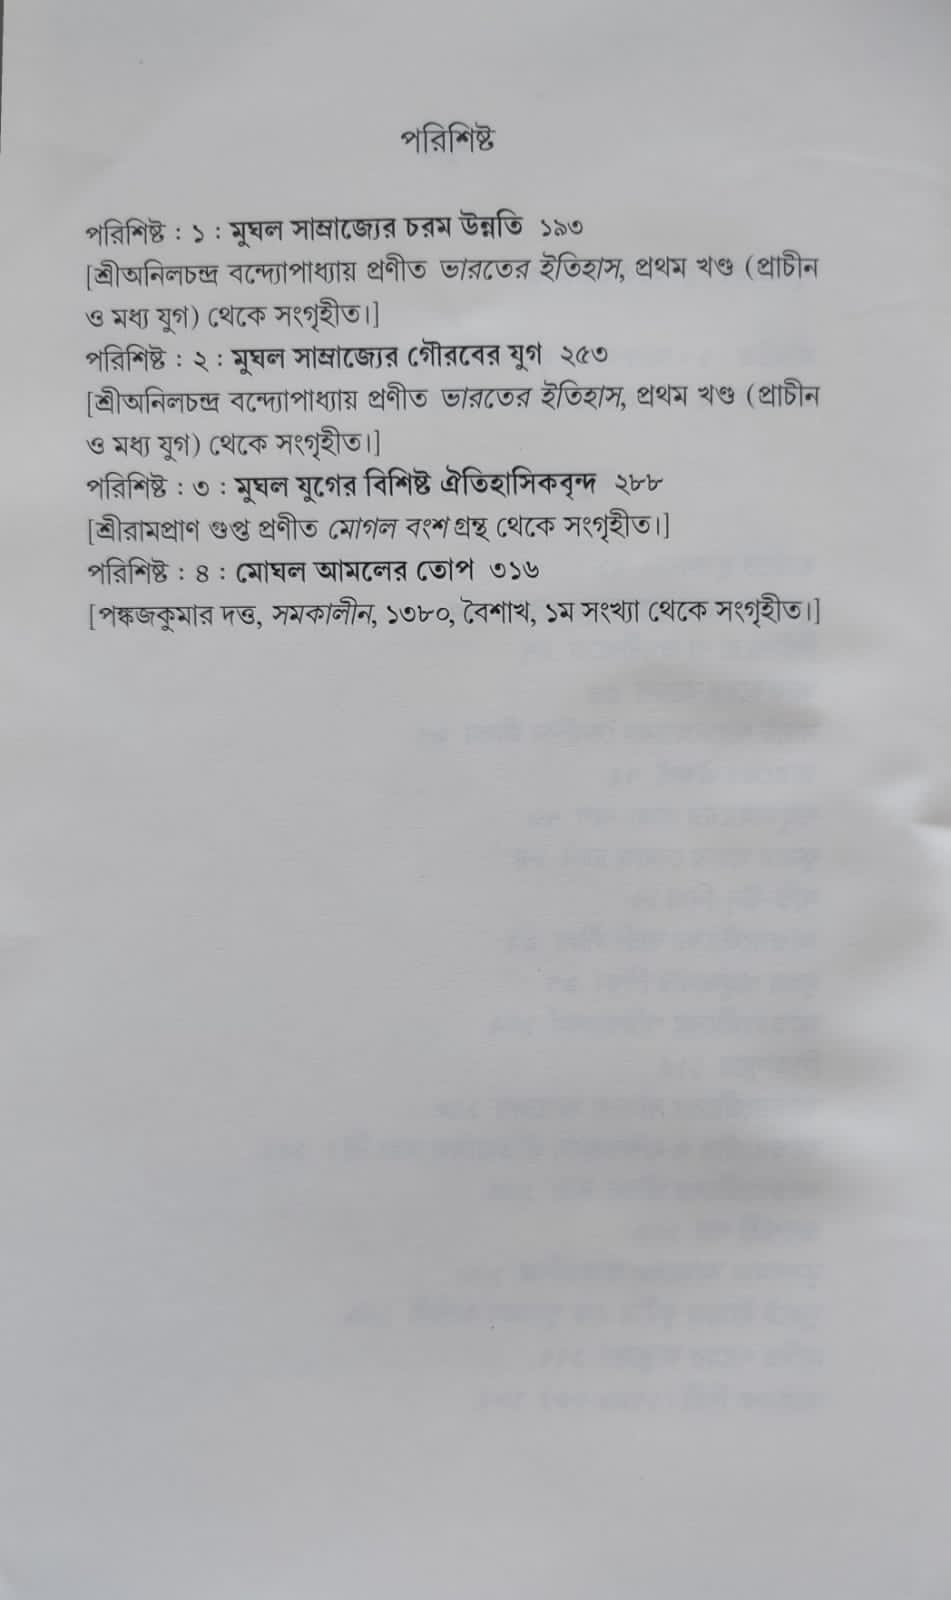 পরিশিষ্ট
পরিশিষ্ট : ১ : মুঘল সাম্রাজ্যের চরম উন্নতি ১৯৩
[শ্রীঅনিলচন্দ্র বন্দ্যোপাধ্যায় প্রণীত ভারতের ইতিহাস, প্রথম খণ্ড (প্রাচীন
ও মধ্য যুগ) থেকে সংগৃহীত।]
পরিশিষ্ট : ২ : মুঘল সাম্রাজ্যের গৌরবের যুগ ২৫৩
[শ্রীঅনিলচন্দ্র বন্দ্যোপাধ্যায় প্রণীত ভারতের ইতিহাস, প্রথম খণ্ড (প্রাচীন
ও মধ্য যুগ) থেকে সংগৃহীত।]
পরিশিষ্ট : ৩ : মুঘল যুগের বিশিষ্ট ঐতিহাসিকবৃন্দ ২৮৮
[শ্রীরামপ্রাণ গুপ্ত প্রণীত মোগল বংশ গ্রন্থ থেকে সংগৃহীত।]
পরিশিষ্ট : ৪ : মোঘল আমলের তোপ ৩১৬
[পঙ্কজকুমার দত্ত, সমকালীন, ১৩৮০, বৈশাখ, ১ম সংখ্যা থেকে সংগৃহীত।]